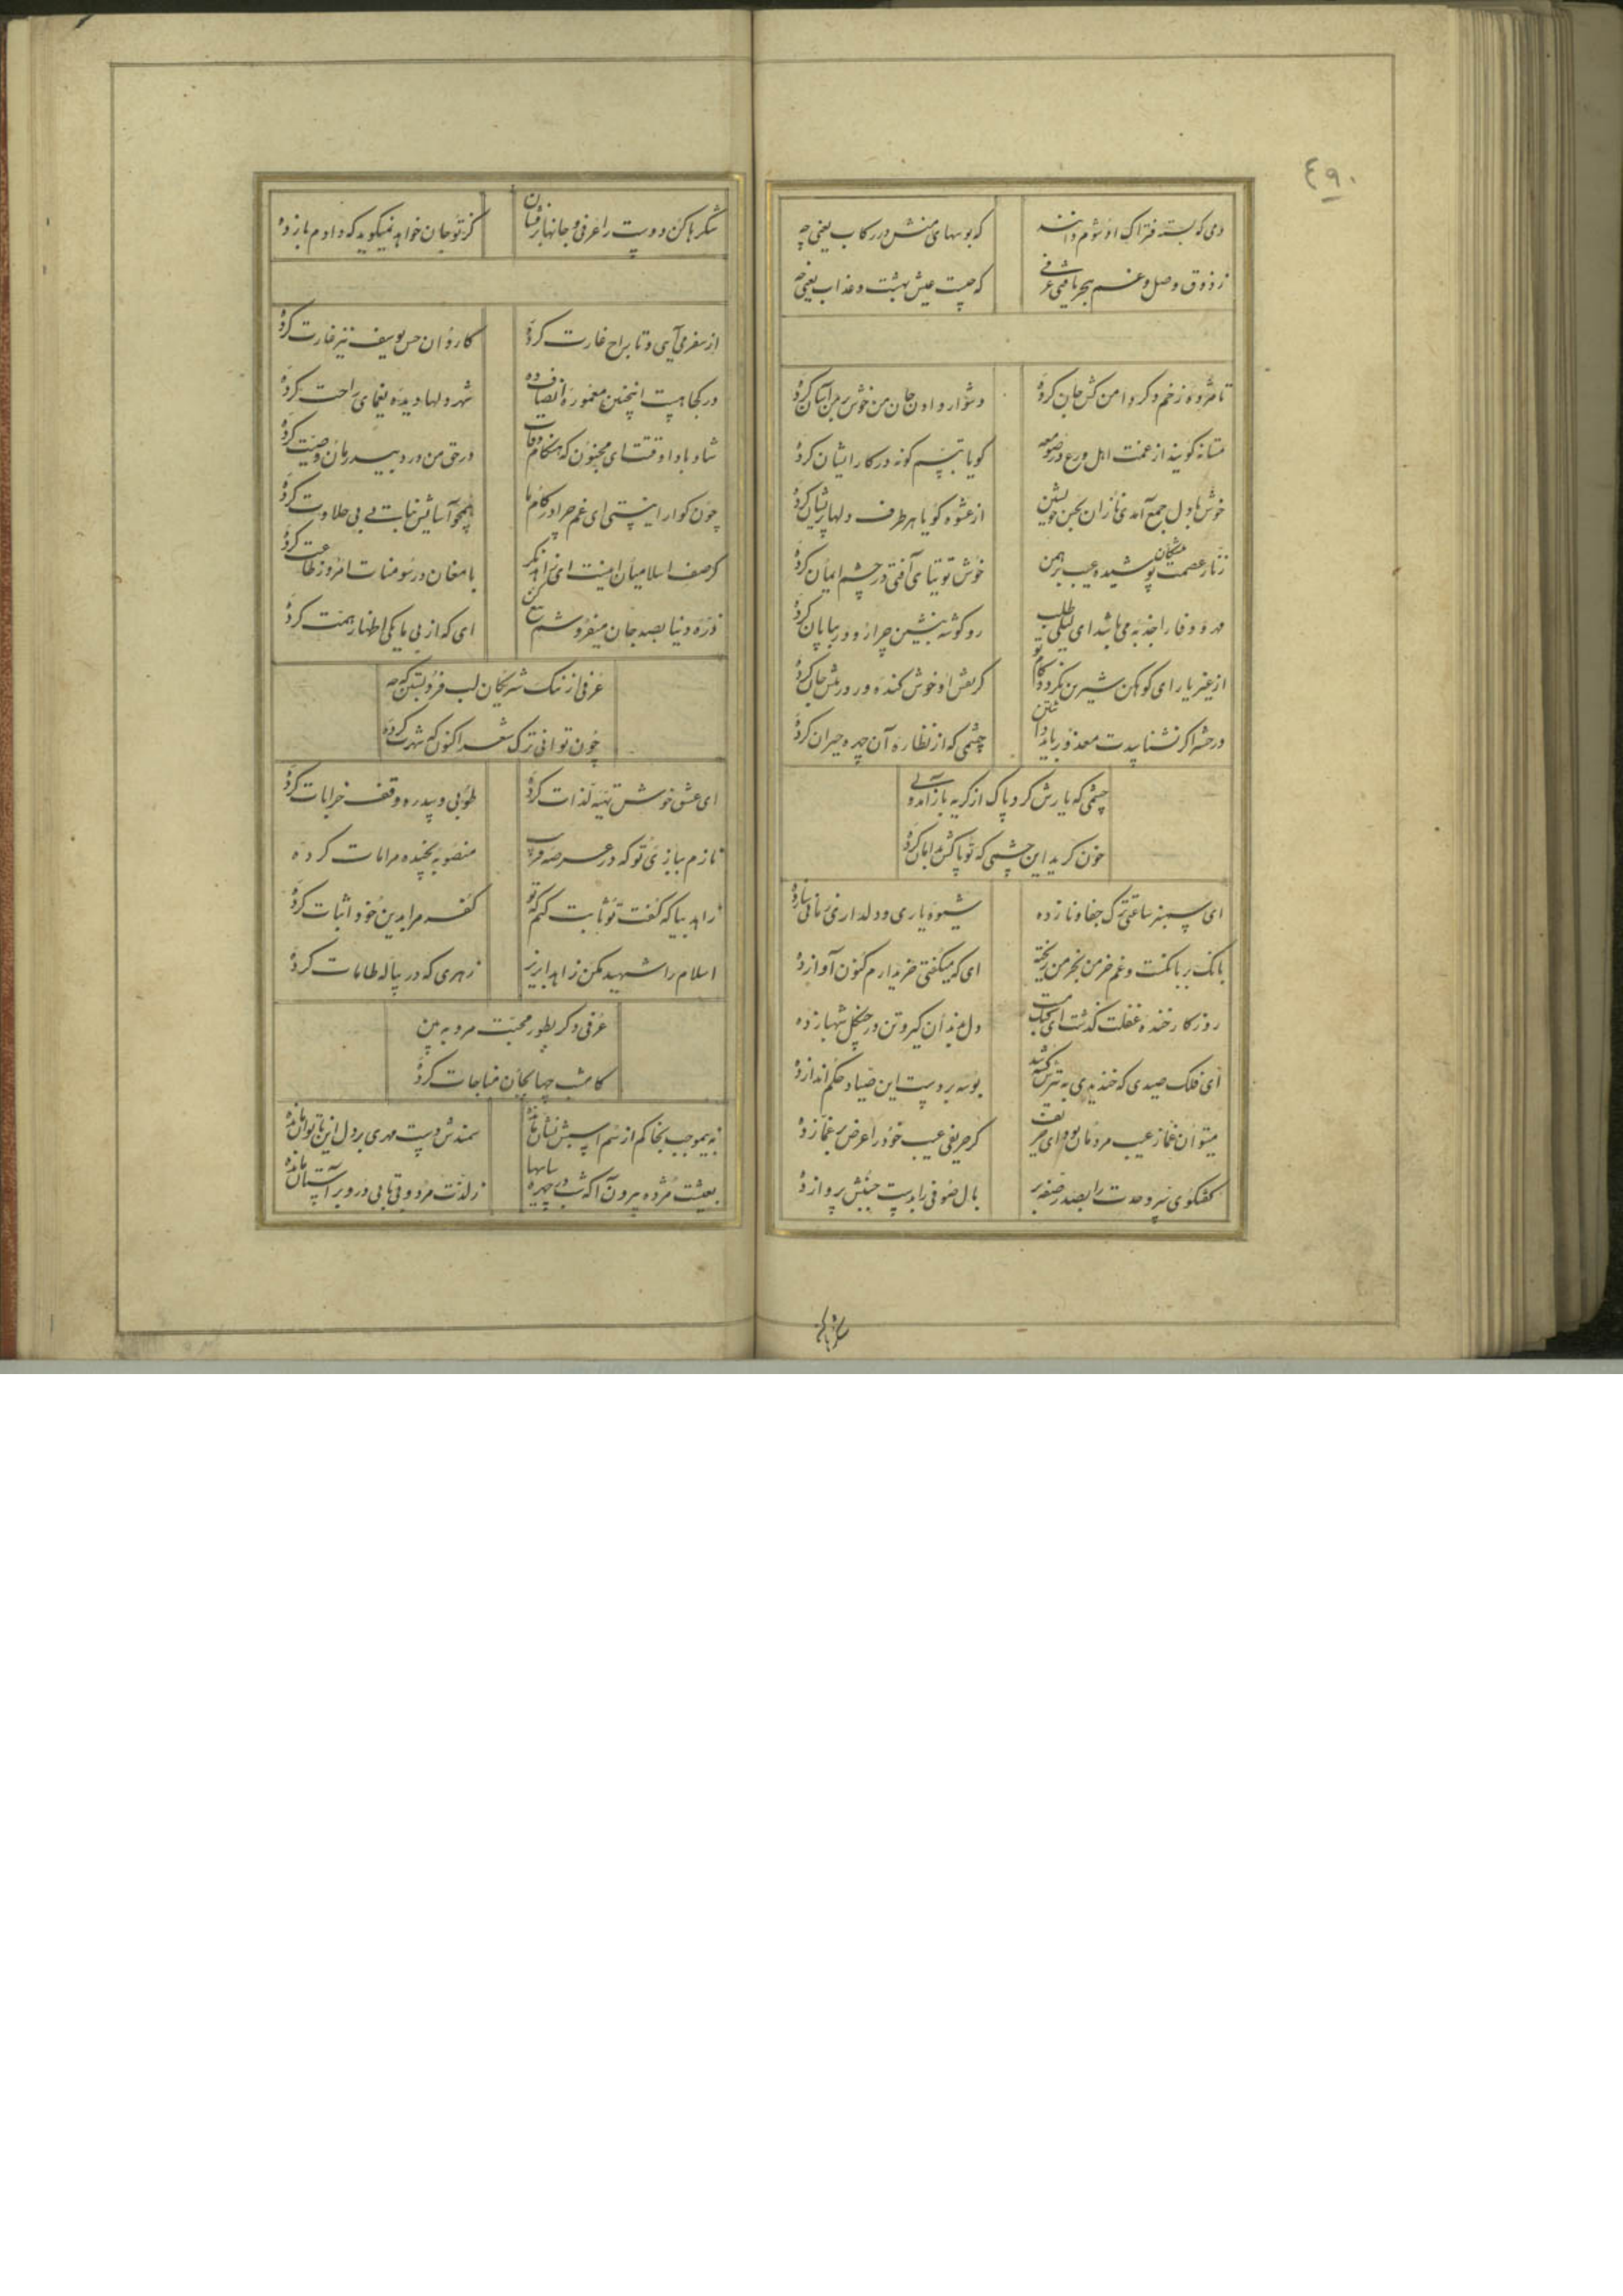 ٤٩٠
دمی که بسته فتراک او شوم دانند
که بوسهای منش در رکاب یعنی چه
ز ذوق وصل و غم هجر یافتی عرفی
که چیست عیش بهشت و عذاب یعنی چه
تا مژده زخم دگر دامن کش جان کرده
دشوار دادن جان من خوش بر من آسان کرده
مستانه گویند از عصمت اهل ورع در صومعه
گویا تبسم گونه در کار ایشان کرده
خوش با دل جمع آمدی نازان بحسن خویشتن
از عشوه گویا هر طرف دلها پریشان کرده
زنار عصمت پوشیده عیب برهمن
خوش توتیای آفتی در چشم ایمان کرده
مهر و وفا را جذبه می باشد ای لیلی طلب
رو گوشه بنشین چرا رو در بیابان کرده
از غیر یار ای کوهکن شیرین نگردد کام تو
گر نقش او خوش کنده ور در بیش جان کرده
در حشر اگر نشناسدت معذور باید داشتن
چشمی که از نظاره آن چهره حیران کرده
چشمی که یارش کرد پاک از گریه باز آمد ولی
خون گرید این چشمی که تو پاکش بدامان کرده
ای سپهر ساعتی ترک جفا و ناز ده
شیوه یاری و دلداری زمانی ساز ده
بانگ بر بانگست و غم خرمن بخرمن ریخته
ای که میگفتی خریدارم کنون آواز ده
روزگار خنده غفلت گذشت ای کبک مست
دل بزندان گیر و تن در چنگل شهباز ده
ای فلک صیدی که خندیدی به تیرش کشته شد
بوسه بر دست این صیاد حکم انداز ده
میتوان غماز عیب مردمان بود ای
گر حریفی عیب خود را عرض بر غماز ده
گفتگوی سر وحدت را بصدر صفه بر
بال صوفی را بدست جنبش پرواز ده
شکرها کن دوست را عرفی و جانها بر فشان
کز تو جان خواهد نمیگوید که دادم باز ده
از سفر می آیی و تاراج غارت کرده
کاروان حسن یوسف نیز غارت کرده
در کجا هست اینچنین معموره انصاف ده
شهر دلها دیده یغمای راحت کرده
شاد باد اوقتت ای مجنون که هنگام وفات
در حق من درد بیدرمان وصیت کرده
چون گوارا نیستی ای غم چرا در کام ما
همچو آسایش نیابت بی حلاوت کرده
گر صف اسلامیان اینست ای زاهد مگر
با مغان در سومنات امروز طاعت کرده
ذره دنیا بصد جان میفروشم
ای که از بی مایکی اظهار همت کرده
عرفی از ننک شریکان لب فرو بستن که چه
چون توانی ترک شعر اکنون که شهرت کرده
ای عشق خوش تهیه لذات کرده
طوبی و سدره وقف خرابات کرده
نازم ببازی تو که در عرصه فریب
منصوبه بچیده مرا مات کرده
زاهد بیا که گفت تو ثابت کنم که تو
کفر مرا بدین خود اثبات کرده
اسلام را شهید مکن زاهدا بریز
زهری که در پیاله طامات کرده
عرفی دگر بطور محبت مرو به بین
کامشب چها بجان مناجات کرده
نه بیموجب بخاکم از سم اسبش نشان مانده
سمندش دست مهری بر دل این ناتوان مانده
بعیشت مژده بیرون آ که شب در سایها چهره
ز لذت مرد و بیتابی در و بر آستان مانده
شکرها کن